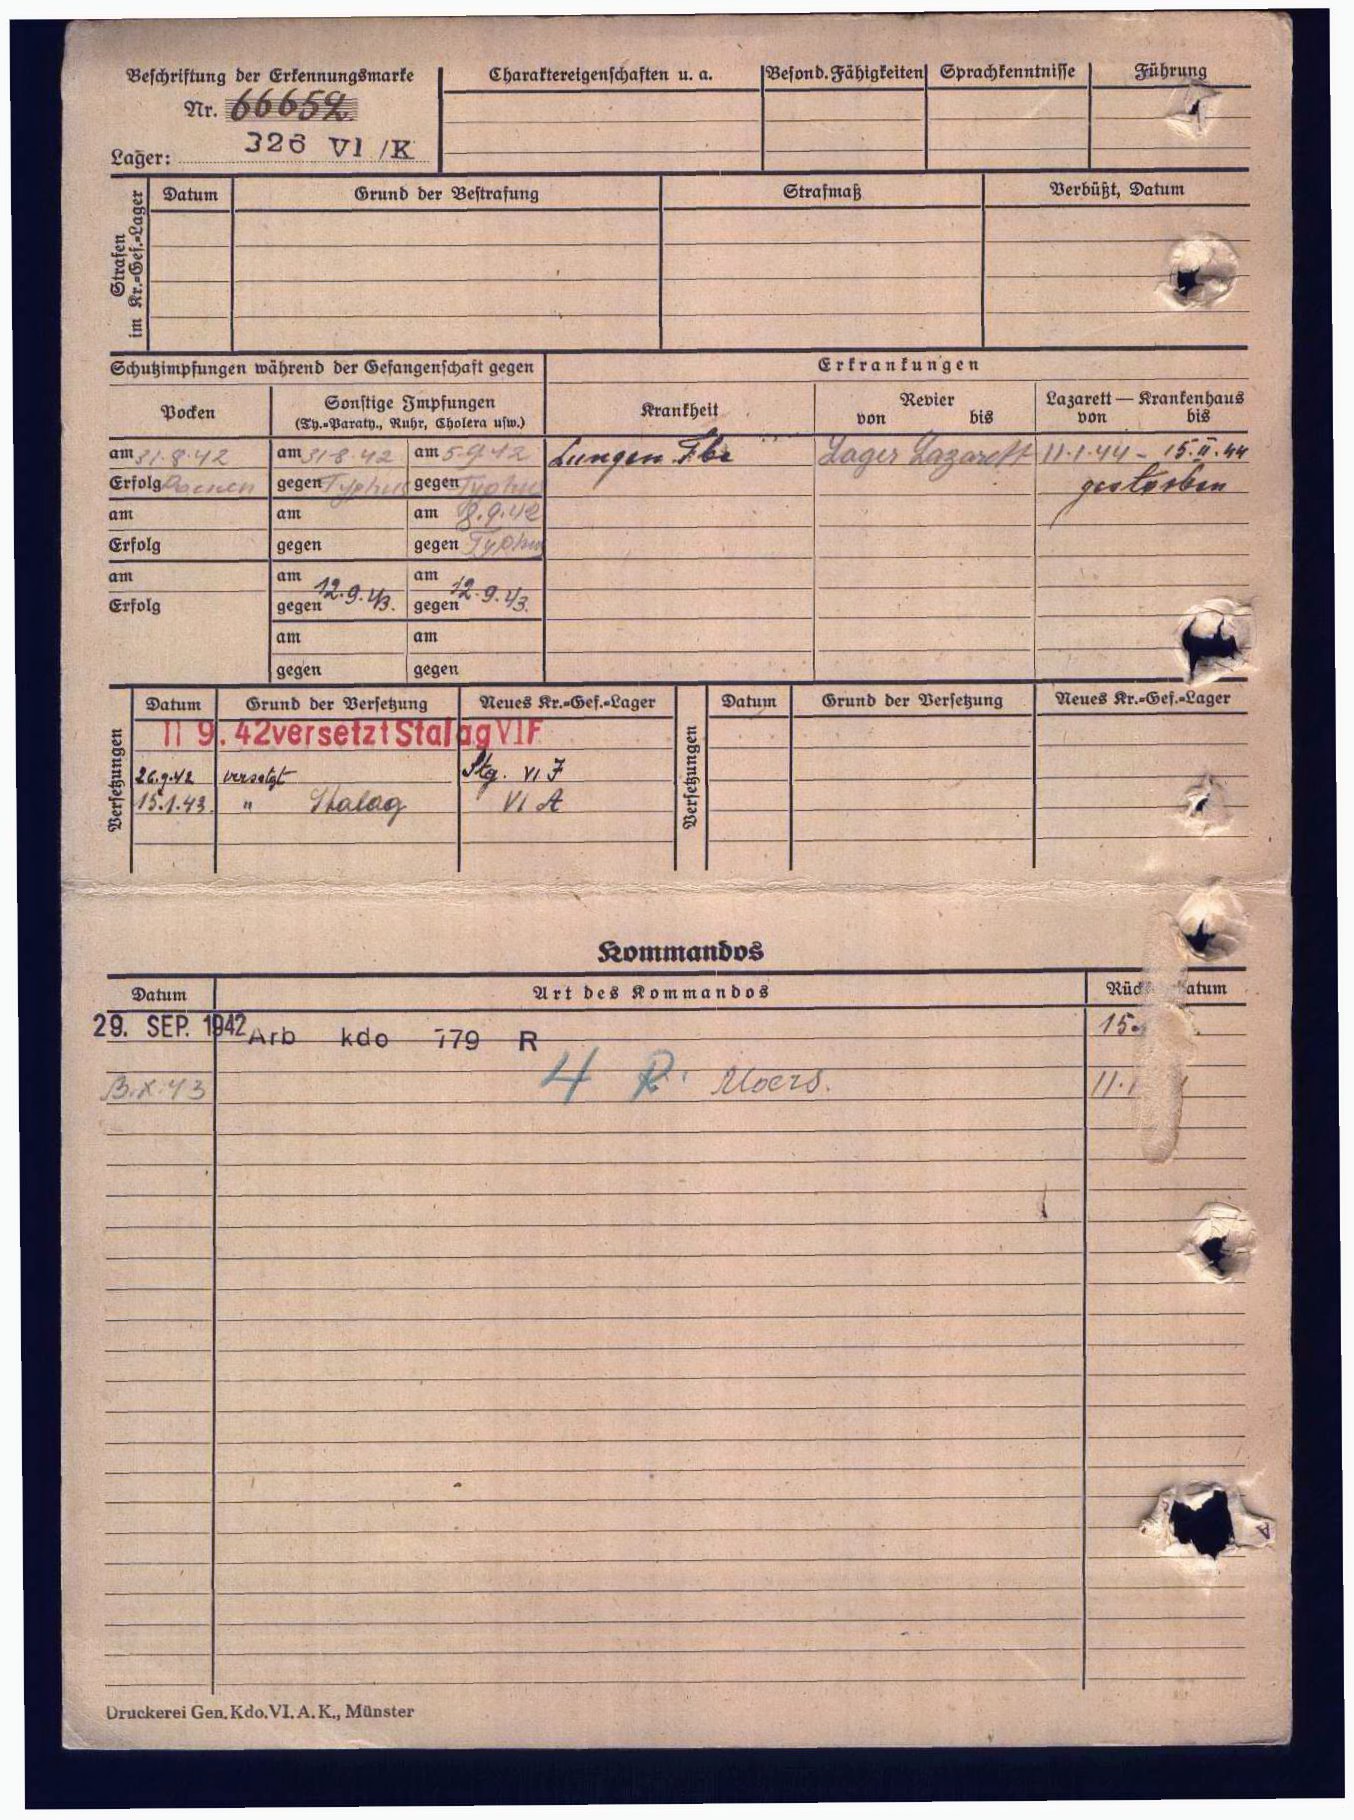 Beschriftung der Erkennungsmarke
Nr. 66652
Lager: 326 VI /K
Charaktereigenschaften u. a.
Besond. Fähigkeiten
Sprachkenntnisse
Führung
Strafen im Kr.=Gef.=Lager
Datum
Grund der Bestrafung
Strafmaß
Verbüßt, Datum
Schutzimpfungen während der Gefangenschaft gegen
Erkrankungen
Pocken
Sonstige Impfungen
(Ty.=Paraty., Ruhr, Cholera usw.)
Krankheit
Revier
von bis
Lazarett — Krankenhaus
von bis
am 31.8.42 am 31.8.42 am 5.9.42 Lungen Tbc Lager Lazarett 11.1.44 - 15.II.44
Erfolg gegen Typhus gegen Typhus gestorben
am am am 8.9.42
Erfolg gegen gegen Typhus
am am am
Erfolg gegen 12.9.43. gegen 12.9.43.
am am
gegen gegen
Versetzungen
Datum Grund der Versetzung Neues Kr.=Gef.=Lager
11 9. 42 versetzt Stalag VI F
26.9.42 versetzt Stg. VI J
15.1.43. " Stalag VI A
Versetzungen
Datum Grund der Versetzung Neues Kr.=Gef.=Lager
Kommandos
Datum Art des Kommandos
29. SEP. 1942 Arb kdo 779 R 15.
3.X.43 4 R. Moers. 11.
Druckerei Gen. Kdo. VI. A. K., Münster